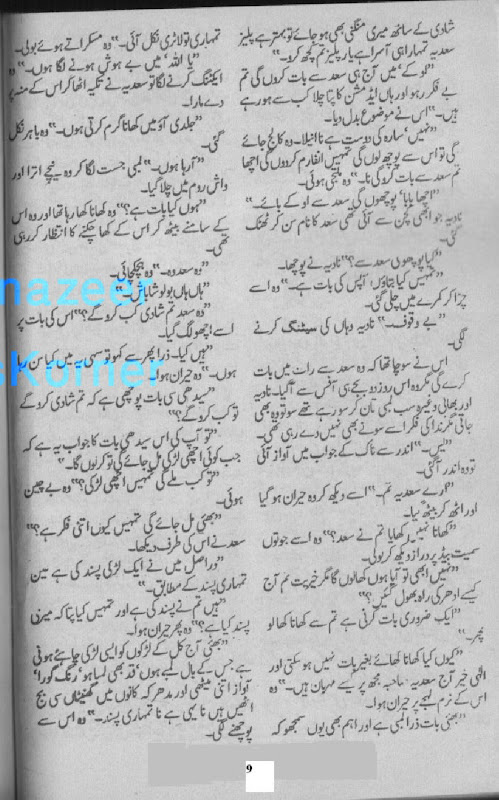 شادی کے ساتھ میری منگنی بھی ہو جائے تو بہتر ہے پلیز
سعدیہ تمہارا ہی آسرا ہے یار پلیز تم کچھ کرو۔"
"اوکے' میں آج ہی سعد سے بات کروں گی تم
بے فکر رہو اور ہاں ایڈمشن کا پتا چلا کب سے ہو رہے
ہیں۔" اس نے موضوع بدل دیا۔
"نہیں' سارہ کی دوست ہے نا انیلا۔ وہ کالج جائے
گی تو اس سے پوچھ لوں گی تمہیں انفارم کردوں گی اچھا
تم سعد سے بات کرو گی نا۔" وہ ملتجی ہوئی۔
"اچھا بابا' پوچھوں گی سعد سے او کے بائے۔"
نادیہ جو ابھی کچن سے آئی تھی سعد کا نام سن کر ٹھٹک
گئی۔
"کیا پوچھو گی سعد سے؟" نادیہ نے پوچھا۔
"تمہیں کیا بتاؤں' آپس کی بات ہے۔" وہ اسے
چڑا کر کمرے میں چلی گئی۔
"بے وقوف۔" نادیہ وہاں کی سیٹنگ کرنے
لگی۔
اس نے سوچا تھا کہ وہ سعد سے رات میں بات
کرے گی مگر وہ اس روز دو بجے ہی آفس سے آگیا۔ نادیہ
اور بھابی وغیرہ سب لمبی تان کر سو رہے تھے سو وہ بھی
جاتی مگر ندا کی فکر اسے سونے بھی نہیں دے رہی تھی۔
"یس۔" اندر سے ناک کے جواب میں آواز آئی
تو وہ اندر آگئی۔
"ارے سعدیہ تم۔" اسے دیکھ کر وہ حیران ہو گیا
اور اٹھ کر بیٹھ گیا۔
"کھانا نہیں کھایا تم نے سعد؟" وہ اسے جوتوں
سمیت بیڈ پر دراز دیکھ کر بولی۔
"نہیں ابھی تو آیا ہوں کھالوں گا مگر خیریت تم آج
کیسے ادھر کی راہ بھول گئیں؟"
"ایک ضروری بات کرنی ہے تم سے کھانا کھا لو
پھر۔"
"کیوں کیا کھانا کھائے بغیر بات نہیں ہو سکتی اور
الٰہی خیر آج سعدیہ صاحبہ مجھ پر کیسے مہربان ہیں۔" وہ
اس کے نرم لہجے پر حیران ہوا۔
"بھئی بات ذرا لمبی ہے اور اہم بھی یوں سمجھو کہ
تمہاری تو لاٹری نکل آئی۔" وہ مسکراتے ہوئے بولی۔
"یا اللہ' میں بے ہوش ہونے لگا ہوں۔" وہ
ایکٹنگ کرنے لگا تو سعدیہ نے تکیہ اٹھا کر اس کے منہ پر
دے مارا۔
"جلدی آؤ میں کھانا گرم کرتی ہوں۔" وہ باہر نکل
گئی۔
"آرہا ہوں۔" لمبی جست لگا کر وہ نیچے اترا اور
واش روم میں چلا گیا۔
"ہوں کیا بات ہے؟" وہ کھانا کھا رہا تھا اور وہ اس
کے سامنے بیٹھ کر اس کے کھا چکنے کا انتظار کر رہی
تھی۔
"وہ سعد وہ۔" وہ ہچکچائی۔
"ہاں ہاں بولو شاباش۔"
"وہ سعد تم شادی کب کرو گے؟" اس کی بات پر
اسے اچھو لگ گیا۔
"ہیں کیا۔ ذرا پھر سے کہو تو سہی یہ میں کیا سن رہا
ہوں۔" وہ حیران ہوا۔
"سیدھی سی بات پوچھی ہے کہ تم شادی کرو گے
تو کب کرو گے؟"
"تو آپ کی اس سیدھی بات کا جواب یہ ہے کہ
جب کوئی اچھی لڑکی مل جائے گی تو کر لوں گا۔"
"تو کب ملے گی تمہیں اچھی لڑکی؟" وہ بے چین
ہوئی۔
"بھئی مل جائے گی تمہیں کیوں اتنی فکر ہے؟"
سعد نے اس کی طرف دیکھا۔
"دراصل میں نے ایک لڑکی پسند کی ہے عین
تمہاری پسند کے مطابق۔"
"ہیں تم نے پسند کی ہے اور تمہیں کیا پتا کہ میری
پسند کیا ہے؟" وہ پھر حیران ہوا۔
"بھئی آج کل کے لڑکوں کو ایسی لڑکی چاہئے ہوتی
ہے جس کے بال لمبے ہوں' قد بھی لمبا ہو' رنگ گورا'
آواز اتنی میٹھی اور مدھر کہ کانوں میں گھنٹیاں سی بج
اٹھیں ہیں نا یہی ہے نا تمہاری پسند۔" وہ اس سے
پوچھنے لگی۔
nazeer
sKorner
9